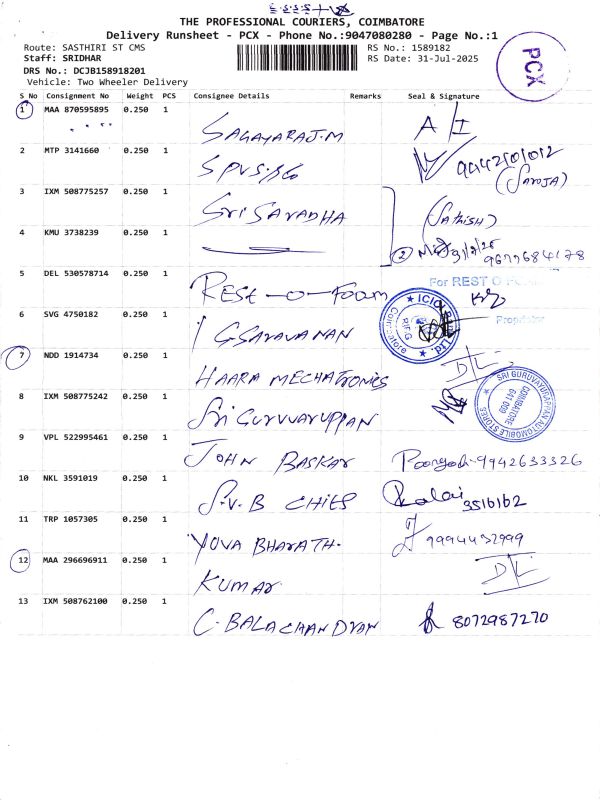 THE PROFESSIONAL COURIERS, COIMBATORE
Delivery Runsheet - PCX - Phone No.:9047080280 - Page No.:1
Route: SASTHIRI ST CMS
RS No.: 1589182
Staff: SRIDHAR
RS Date: 31-Jul-2025
DRS No.: DCJB158918201
Vehicle: Two Wheeler Delivery
PCX
S No Consignment No Weight PCS Consignee Details Remarks Seal & Signature
1 MAA 870595895 0.250 1
SAGAYARAJ.M A/I
2 MTP 3141660 0.250 1
(Saroja)
3 IXM 508775257 0.250 1
Sri SARADHA (Sathish)
4 KMU 3738239 0.250 1
2 9677684178
5 DEL 530578714 0.250 1
For REST O
REST-O-FOAM
Proprietor
6 SVG 4750182 0.250 1
G SARAVANAN
7 NDD 1914734 0.250 1
HAARA MECHATRONICS D/L
8 IXM 508775242 0.250 1
SRI GURUVAYURAPPAN AUTOMOBILE STORES
COIMBATORE
Sri GURUVAYURPPAN
9 VPL 522995461 0.250 1
JOHN BASKAR 9942633326
10 NKL 3591019 0.250 1
S.V.B CHITS Kalai
11 TRP 1057305 0.250 1
YUVA BHARATH.
12 MAA 296696911 0.250 1
KUMAR D/L
13 IXM 508762100 0.250 1
C. BALACHANDRAN 8072987270